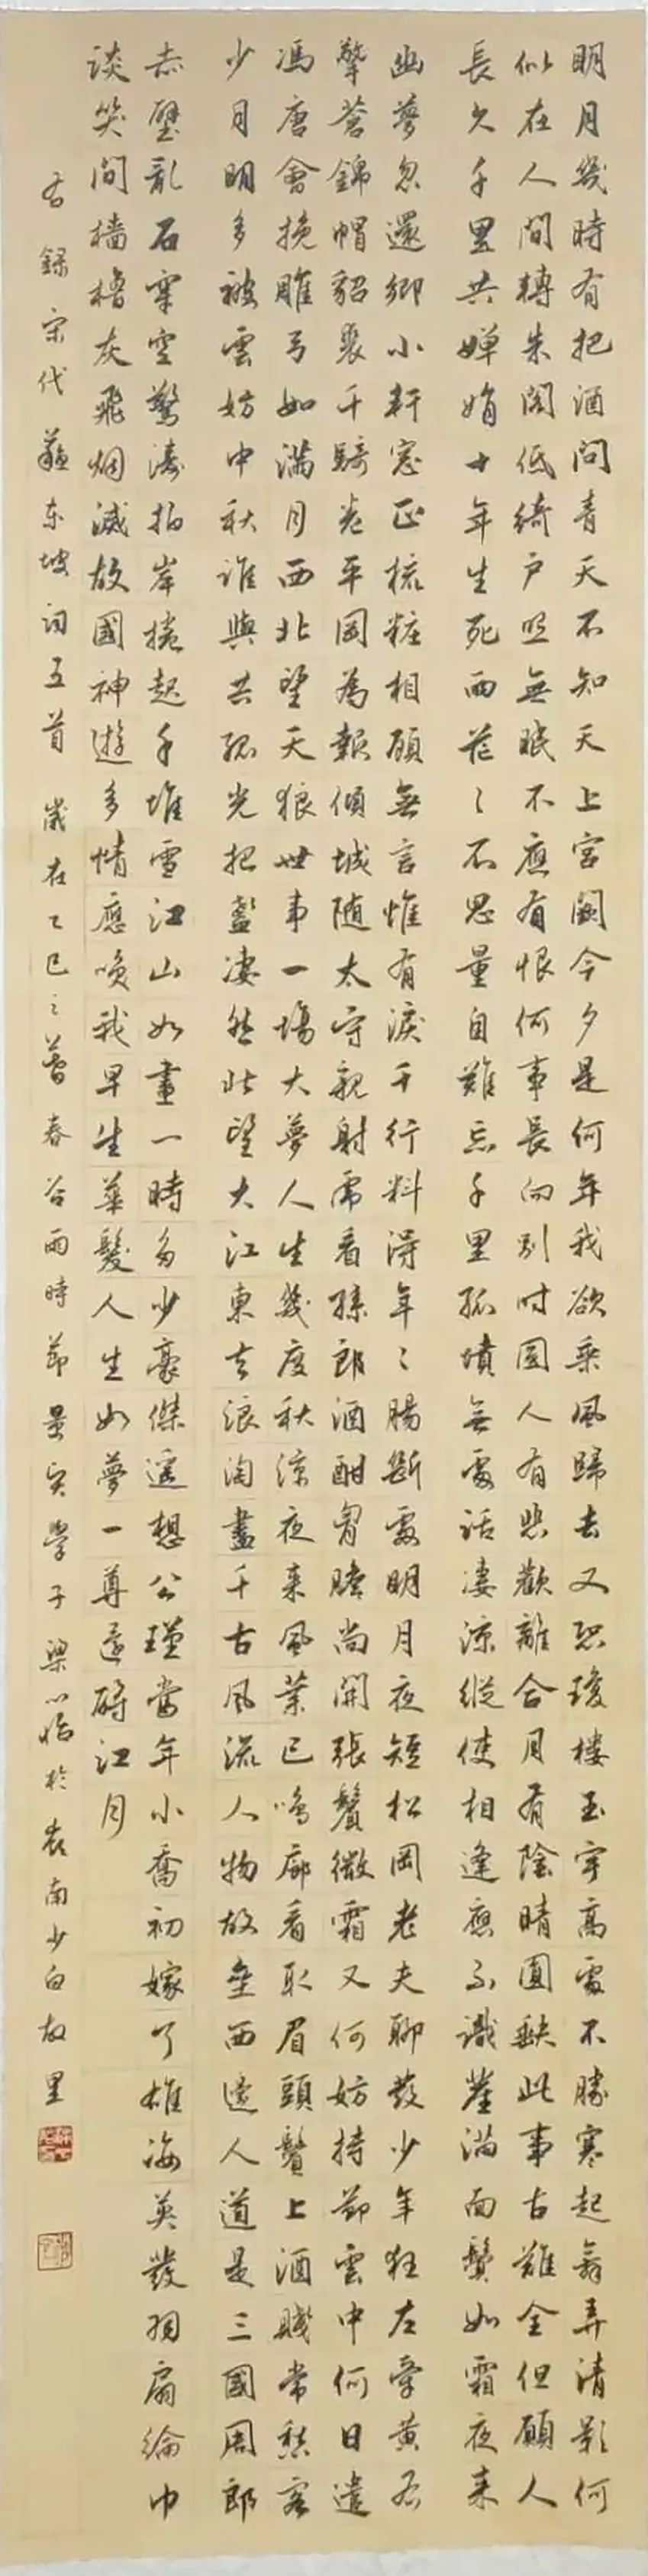 明月幾時有把酒問青天不知天上宮闕今夕是何年我欲乘風歸去又恐瓊樓玉宇高處不勝寒起舞弄清影何
似在人間轉朱閣低綺戶照無眠不應有恨何事長向別時圓人有悲歡離合月有陰晴圓缺此事古難全但願人
長久千里共嬋娟十年生死兩茫〻不思量自難忘千里孤墳無處話淒涼縱使相逢應不識塵滿面鬢如霜夜來
幽夢忽還鄉小軒窓正梳粧相顧無言惟有淚千行料得年〻腸斷處明月夜短松岡老夫聊發少年狂左牽黃右
擎蒼錦帽貂裘千騎卷平岡為報傾城隨太守親射虎看孫郎酒酣胸膽尚開張鬢微霜又何妨持節雲中何日遣
馮唐會挽雕弓如滿月西北望天狼世事一場大夢人生幾度秋涼夜來風葉已鳴廊看取眉頭鬢上酒賤常愁客
少月明多被雲妨中秋誰與共孤光把盞淒然北望大江東去浪淘盡千古風流人物故壘西邊人道是三國周郎
赤壁亂石穿空驚濤拍岸捲起千堆雪江山如畫一時多少豪傑遙想公瑾當年小喬初嫁了雄姿英發羽扇綸巾
談笑間檣櫓灰飛烟滅故國神遊多情應笑我早生華髮人生如夢一尊還酹江月
右錄宋代蘇東坡詞五首 歲在乙巳之暮春谷雨時節墨安學子梁 於 南少白故里